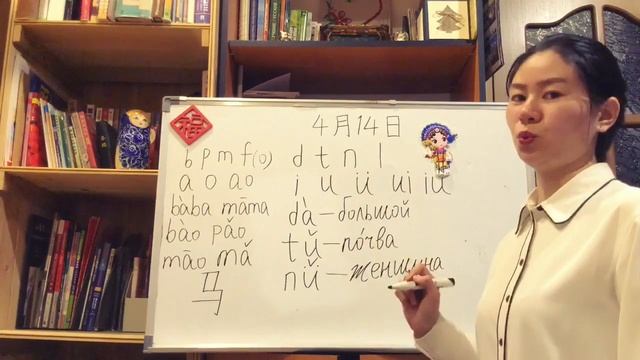 福
4月14日
b p m f(o)
a o ao
bàba māma
bāo pǎo
māo mǎ
马
d t n l
i u ü ui iu
dà–большой
tǔ–по́чва
nǚ–женщина